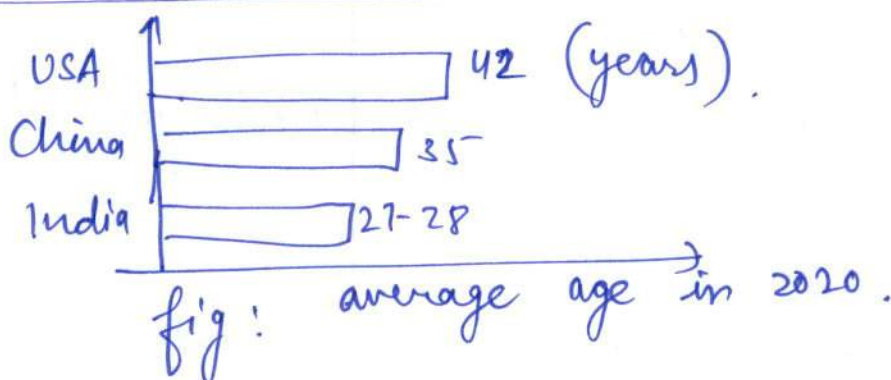 USA 42 (years).
China 35
India 27-28
fig: average age in 2020.